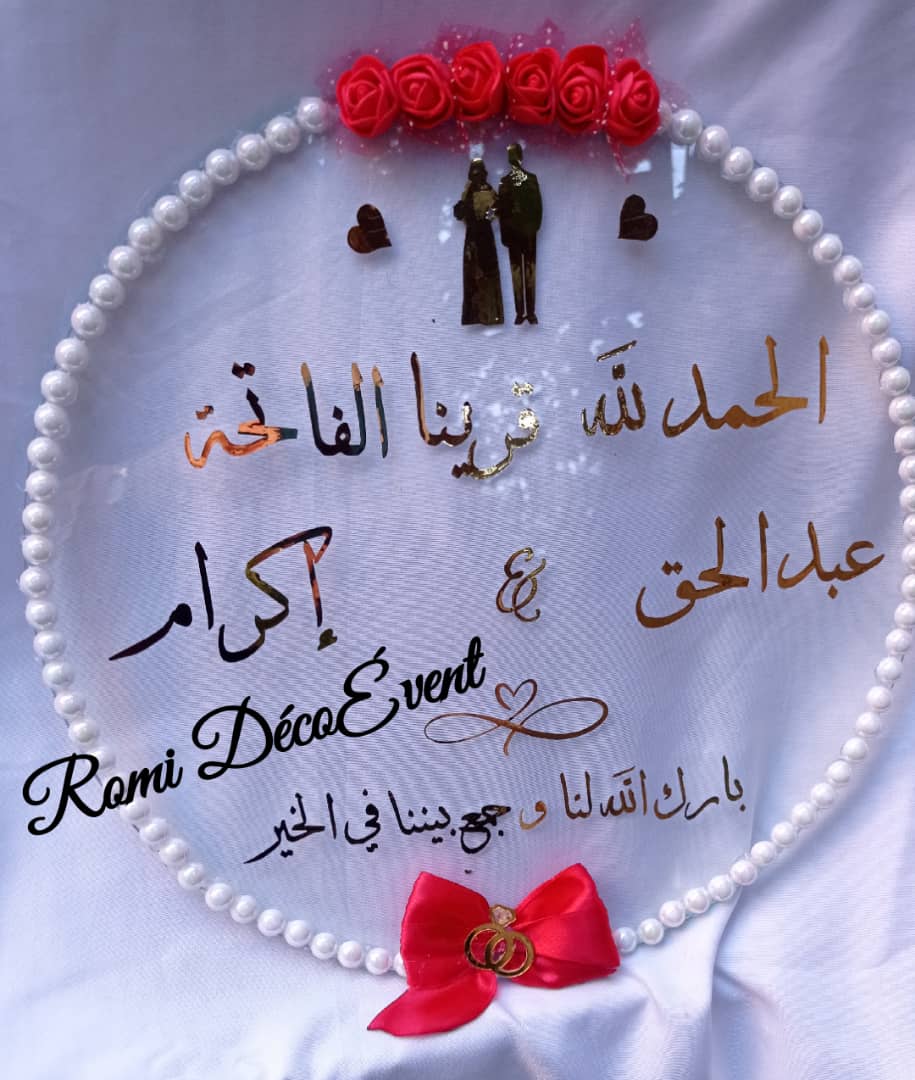 الحمد لله قرينا الفاتحة
عبدالحق & إكرام
Romi DécoÉvent
بارك الله لنا و جمع بيننا في الخير